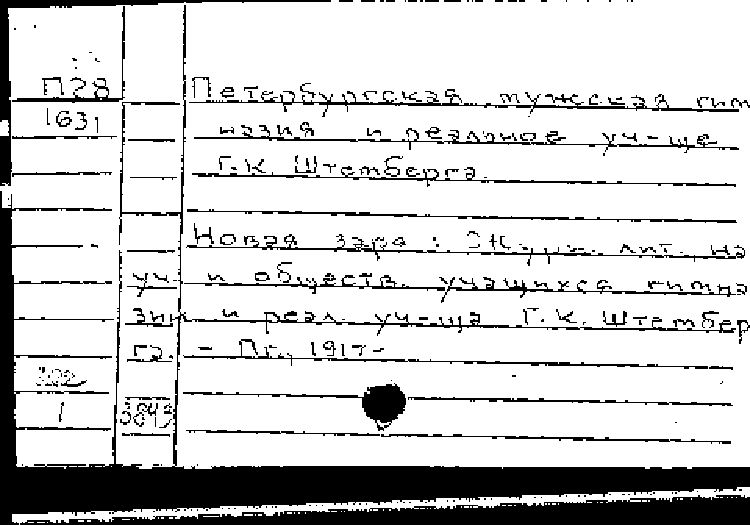 П28
1631
Петербургская мужская гим
назия и реальное уч-ще
Г.К. Штемберга.
Новая заря : Журн. лит., на
уч. и обществ. учащихся гимна
зии и реал. уч-ща Г.К. Штембер
га. - Пг., 1917-
302
1
3843